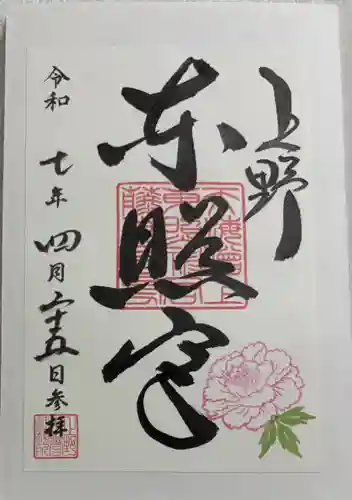 上野
東照宮
令和 七年 四月 二十五日 参拝